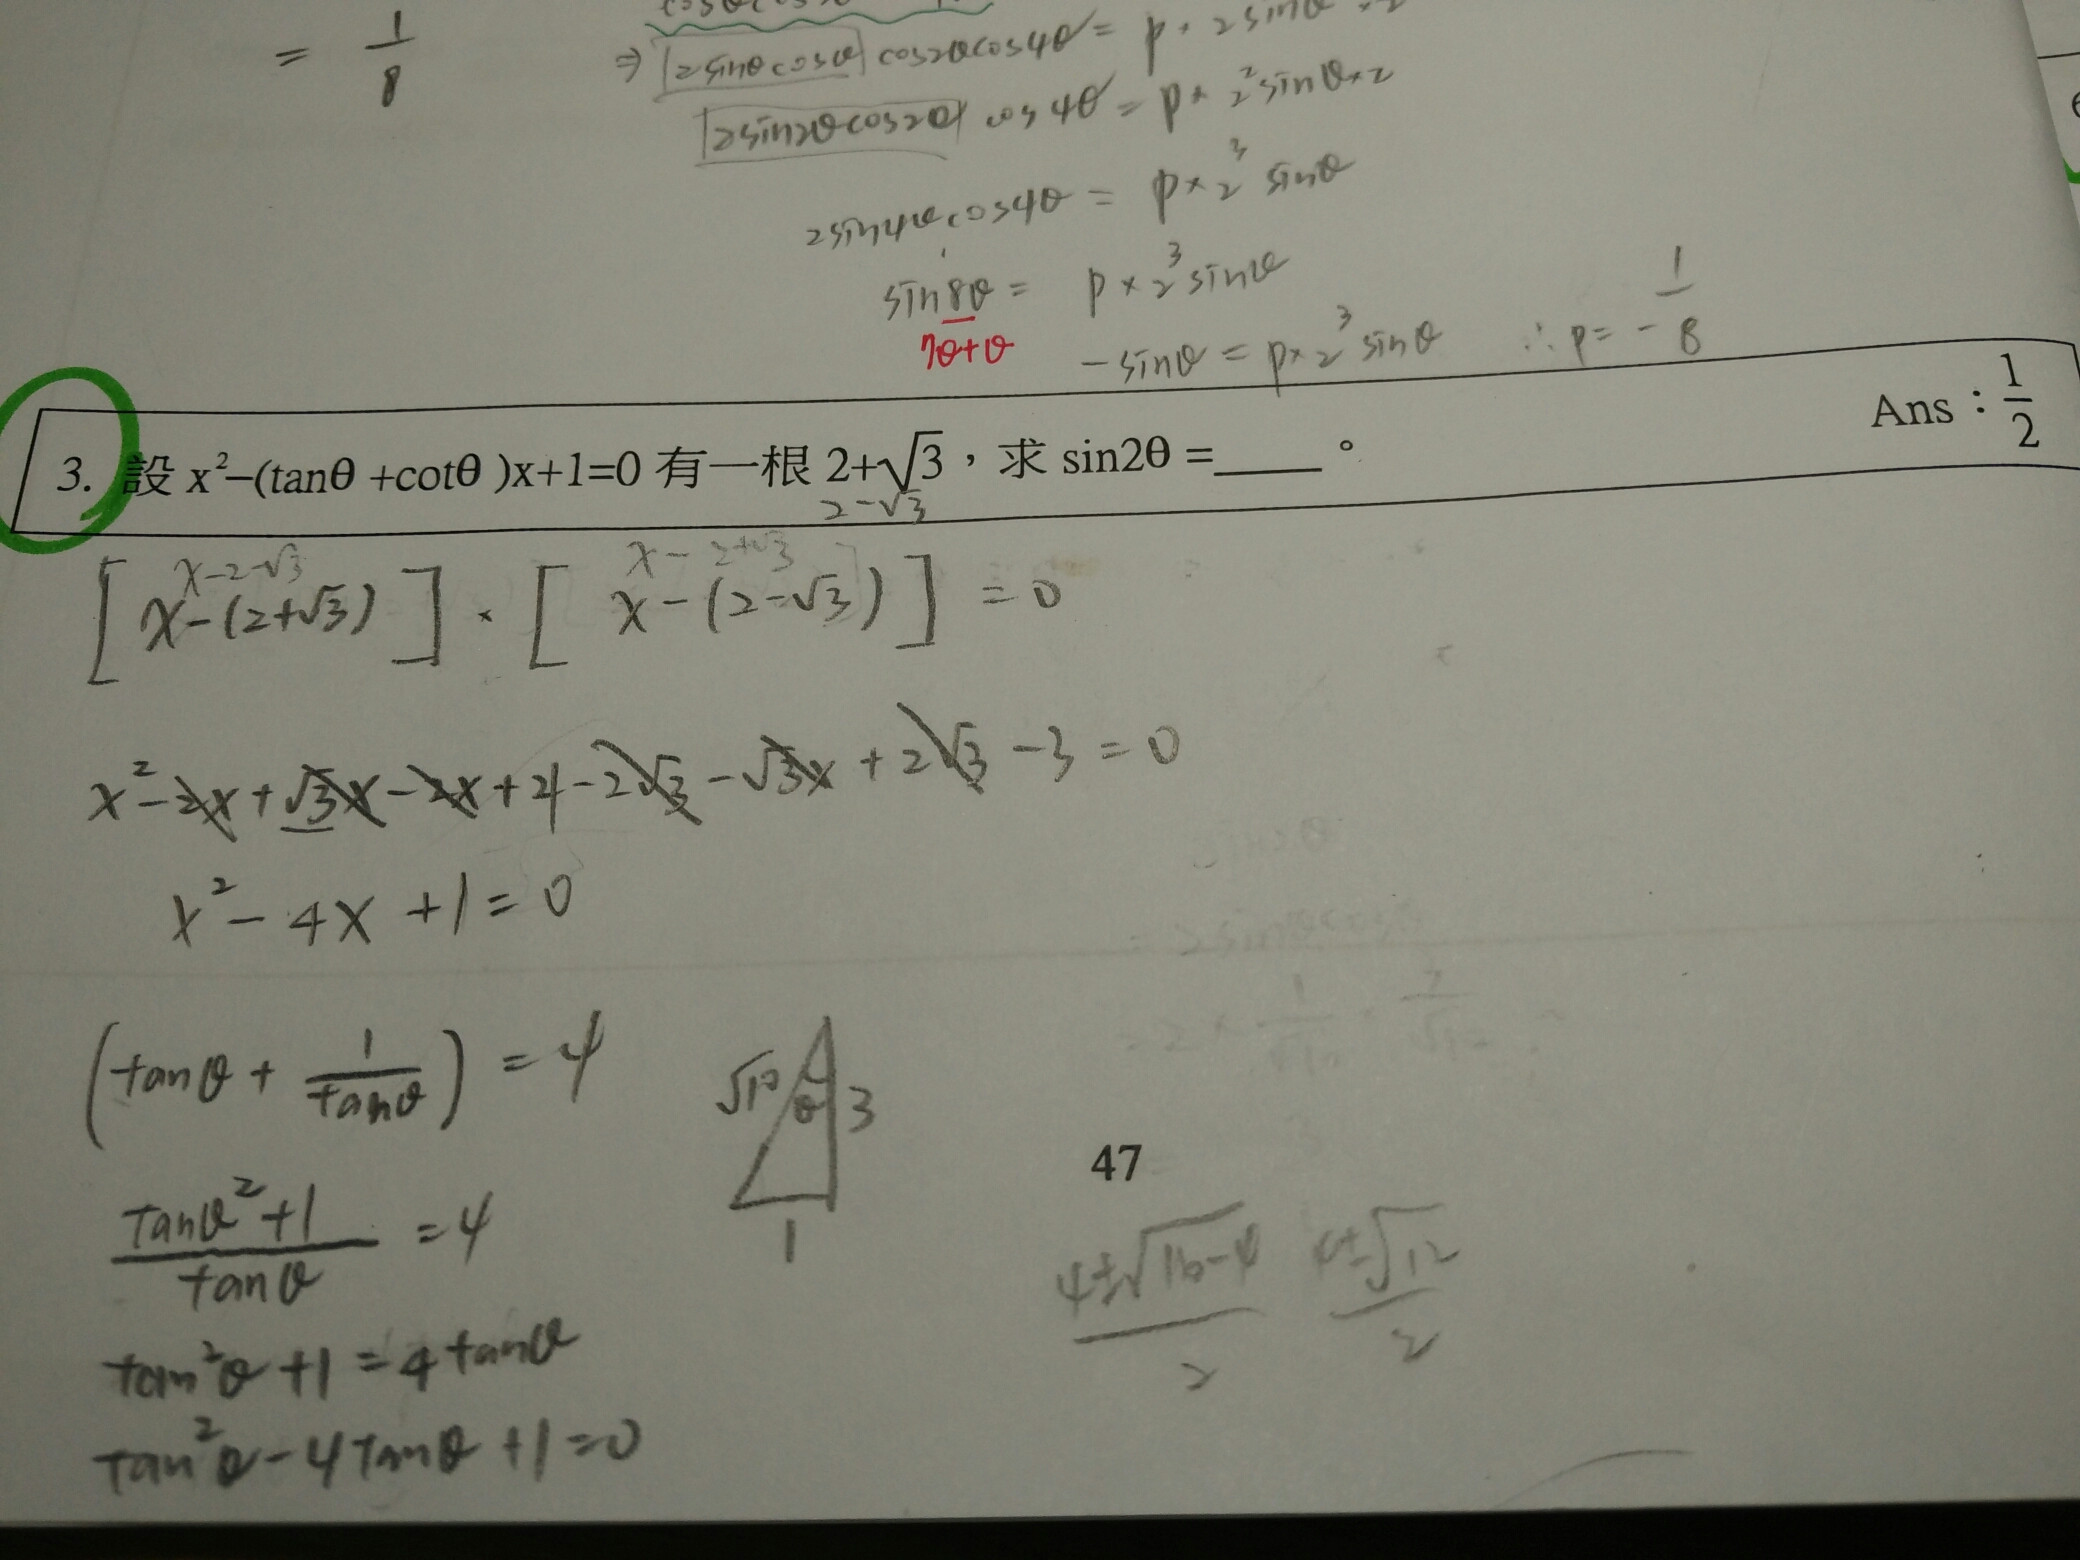 = 1/8
⇒ 2sinθcosθ cos2θcos4θ = p · 2sinθ
2sin2θcos2θ cos4θ = p × 2² sinθ×2
2sin4θcos4θ = p × 2³ sinθ
sin8θ = p × 2³ sinθ
7θ+θ
-sinθ = p × 2³ sinθ ∴ p = -1/8
Ans：1/2
3. 設 x²–(tanθ +cotθ )x+1=0 有一根 2+√3，求 sin2θ =____。
2-√3
x-2-√3 x-2+√3
[x-(2+√3)] · [x-(2-√3)] = 0
x²-2x+√3x-2x+4-2√3-√3x+2√3-3=0
x²-4x+1=0
(tanθ + 1/tanθ) = 4
√10 θ 3
1
47
(tanθ²+1)/tanθ = 4
(4±√(16-4))/2 (4±√12)/2
tan²θ+1=4tanθ
tan²θ-4tanθ+1=0